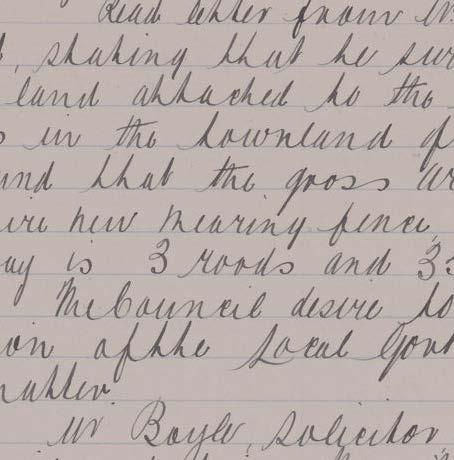 Read letter from W.
, stating that he sur
land attached to the
s in the townland of
und that the gross ar
ire new mearing fence,
ay is 3 roods and 33
The Council desire to
on of the Local Govt
matter.
Mr Boyle, Solicitor